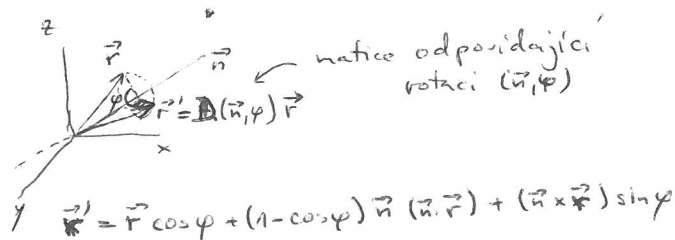 z
r⃗
n⃗
matice odpovídající
rotaci (n⃗,φ)
φ
r⃗' = D(n⃗,φ) r⃗
x
y
r⃗' = r⃗ cosφ + (1-cosφ) n⃗ (n⃗.r⃗) + (n⃗ × r⃗) sinφ